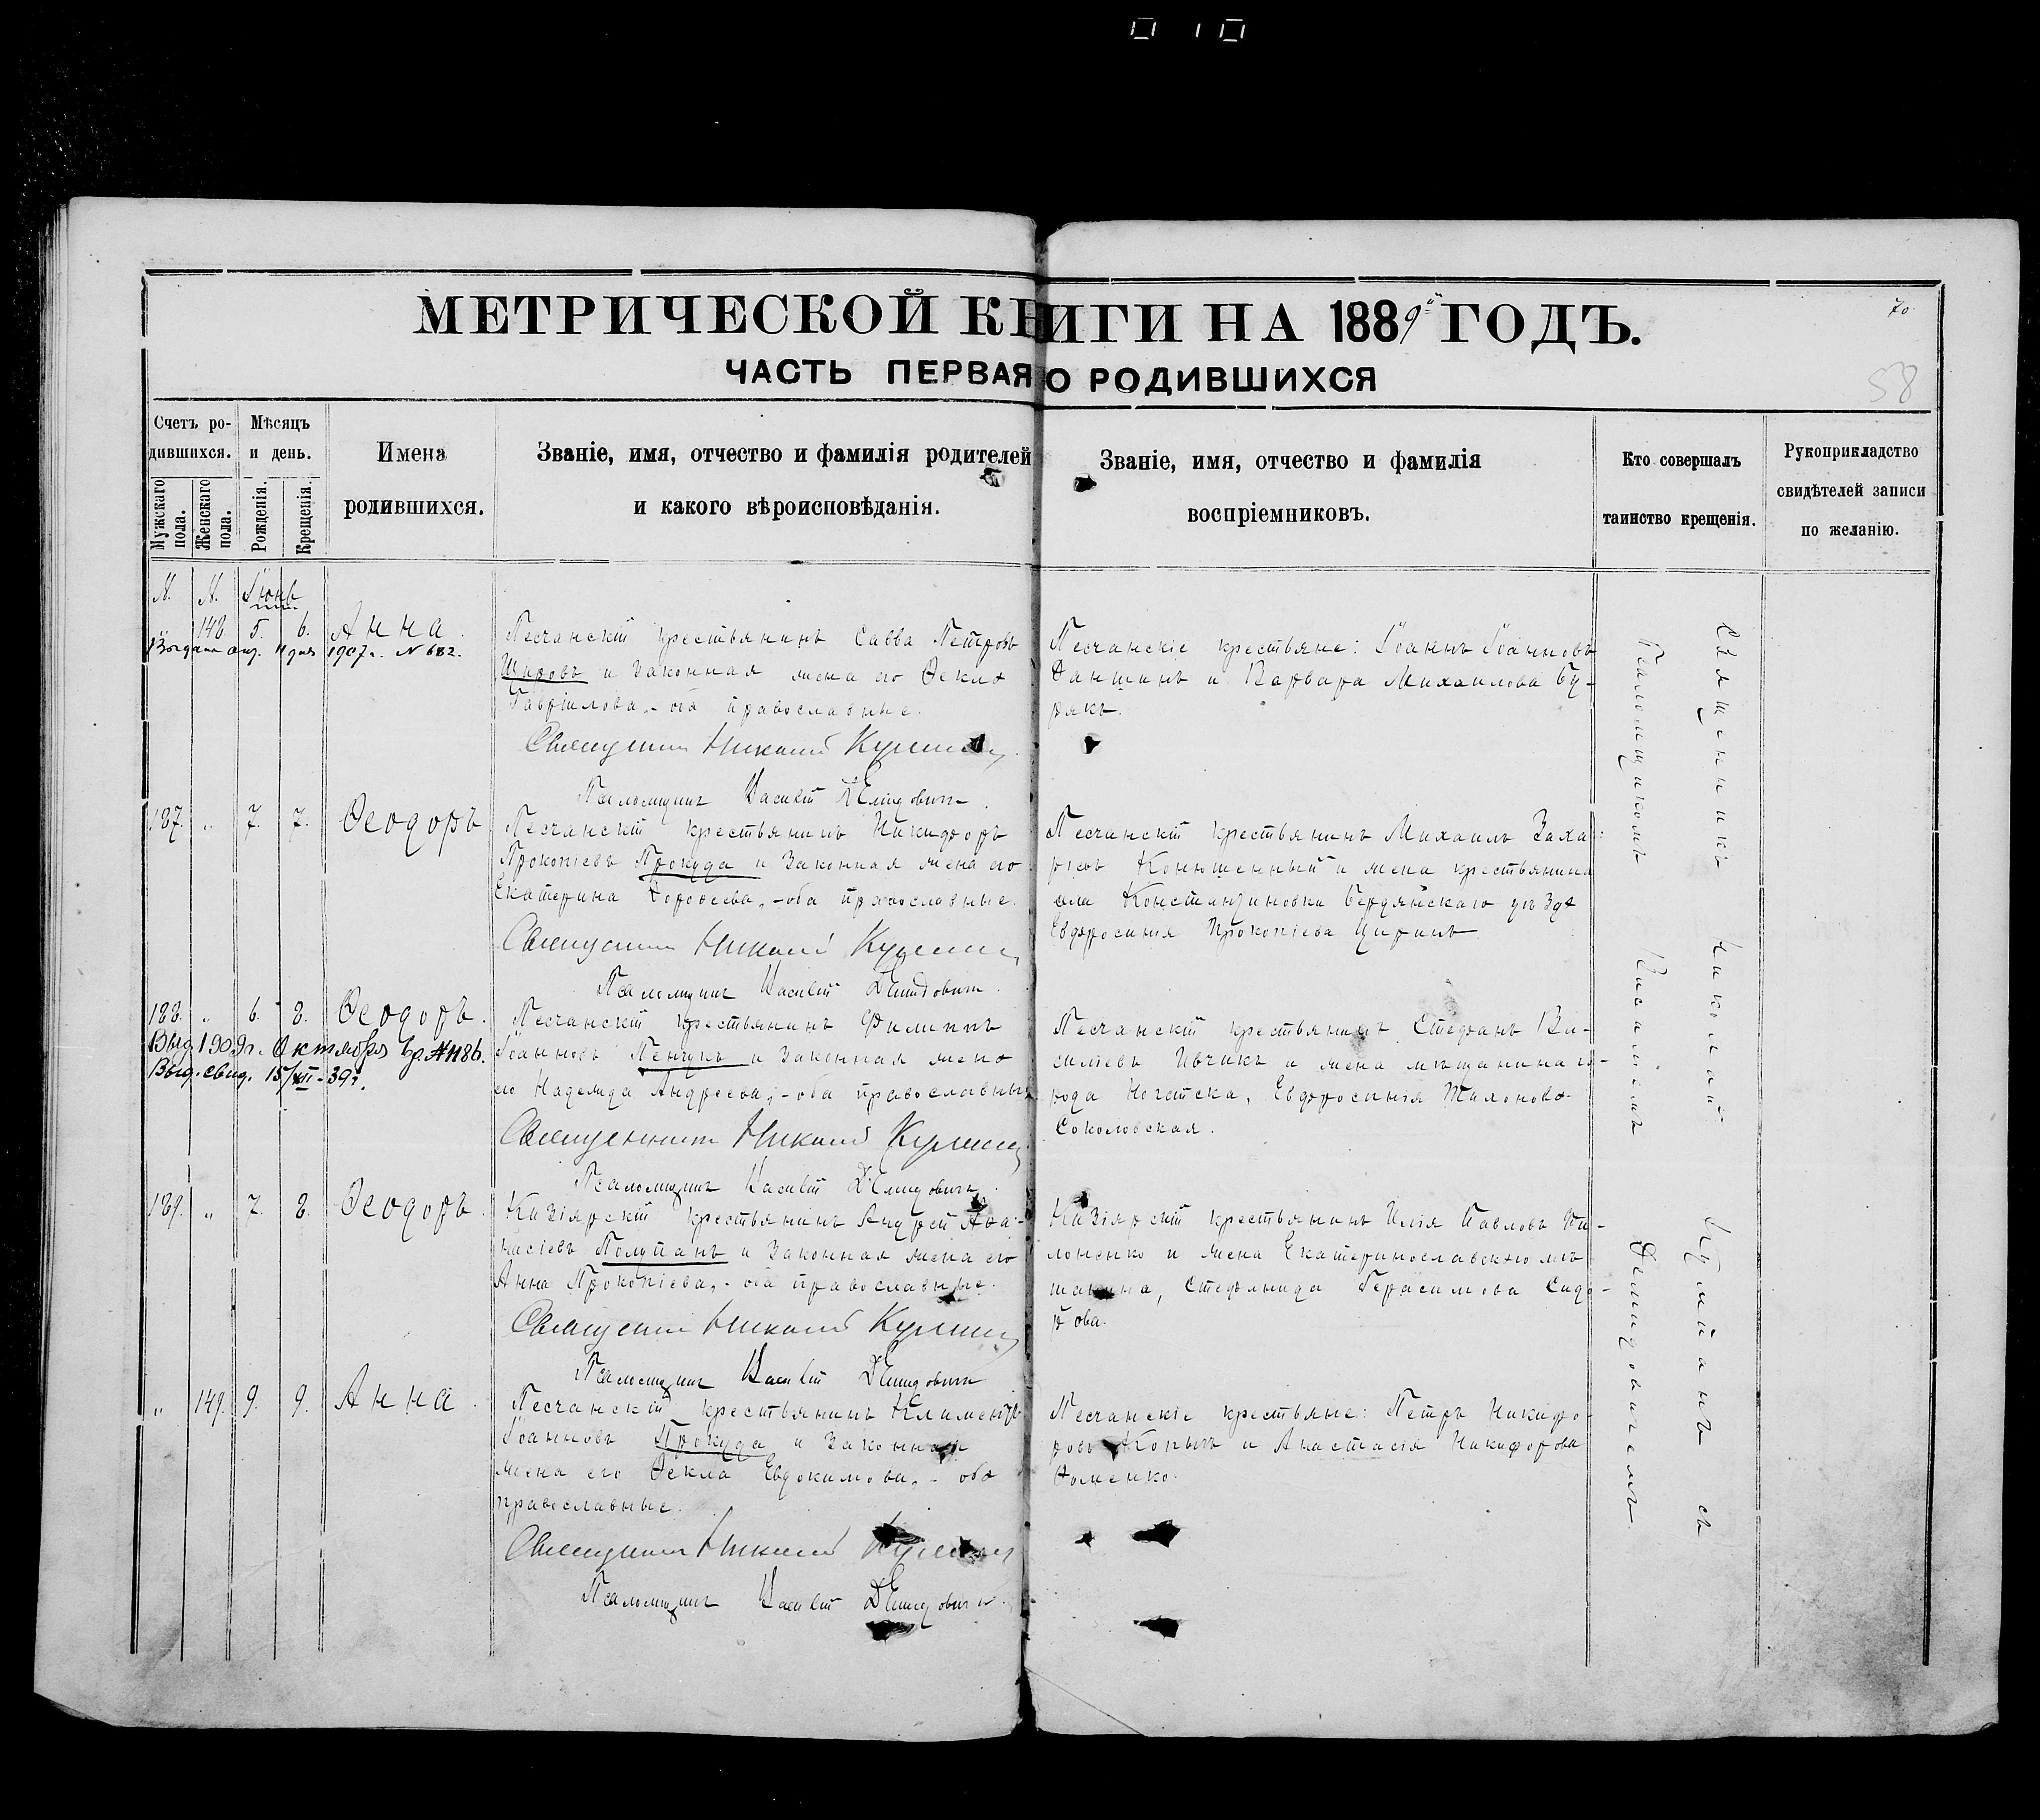 010
МЕТРИЧЕСКОЙ КНИГИ НА 1889й ГОДЪ.
70.
ЧАСТЬ ПЕРВАЯ О РОДИВШИХСЯ
58
Счетъ родившихся.
Мужскаго пола.
Женскаго пола.
Мѣсяцъ и день.
Рожденія.
Крещенія.
Имена
родившихся.
Званіе, имя, отчество и фамилія родителей
и какого вѣроисповѣданія.
Званіе, имя, отчество и фамилія
воспріемниковъ.
Кто совершалъ
таинство крещенія.
Рукоприкладство
свидѣтелей записи
по желанію.
М. М. Іюнь
148 5. 6. Анна.
1907г. N 682.
Песчанскій крестьянинъ Савва Петровъ
Шировъ и законная жена его Ѳекла
Гавріилова, - оба православные.
Священникъ Николай
Псаломщикъ Василій Демидовичъ.
Песчанскіе крестьяне: Іоаннъ Іоанновъ
Даншинъ и Варвара Михаилова Бу-
рякъ.
187. „ 7. 7. Ѳеодоръ
Песчанскій крестьянинъ Никифоръ
Прокопіевъ Прокуда и законная жена его
Екатерина Дороѳеева, - оба православные.
Священникъ Николай
Псаломщикъ Василій Демидовичъ.
Песчанскій крестьянинъ Михаилъ Заха-
ріевъ Конюшенный и жена крестьянина
села Константиновки Бердянскаго уѣзда
Евфросинія Прокопіева
188. „ 6. 8. Ѳеодоръ.
Выд. 1909г. Октября 6г. N1186.
Выд. свид. 15/XII-39г.
Песчанскій крестьянинъ Филиппъ
Іоанновъ Пенчукъ и законная жена
его Надежда Андреева, - оба православные
Священникъ Николай
Псаломщикъ Василій Демидовичъ.
Песчанскій крестьянинъ Стефанъ Ва-
силіевъ Ивчикъ и жена мѣщанина го-
рода Ногайска, Евфросинія
Соколовская.
189. „ 7. 8. Ѳеодоръ.
крестьянинъ Андрей Аѳа-
насіевъ Полупанъ и законная жена его
Анна Прокопіева, - оба православные.
Священникъ Николай
Псаломщикъ Василій Демидовичъ
крестьянинъ Илія Павловъ Фи-
лоненко и жена Екатеринославскаго мѣ-
щанина, Герасимова Сидо-
рова.
„ 149. 9. 9. Анна.
Песчанскій крестьянинъ Климентъ
Іоанновъ Прокуда и законная
жена его Ѳекла Евдокимова, - оба
православные.
Священникъ Николай
Псаломщикъ Василій Демидовичъ.
Песчанскіе крестьяне: Петръ Никифо-
ровъ и Анастасія Никифорова
Доменко.
Священникъ Николай съ
Псаломщикомъ Василіемъ Демидовичемъ.